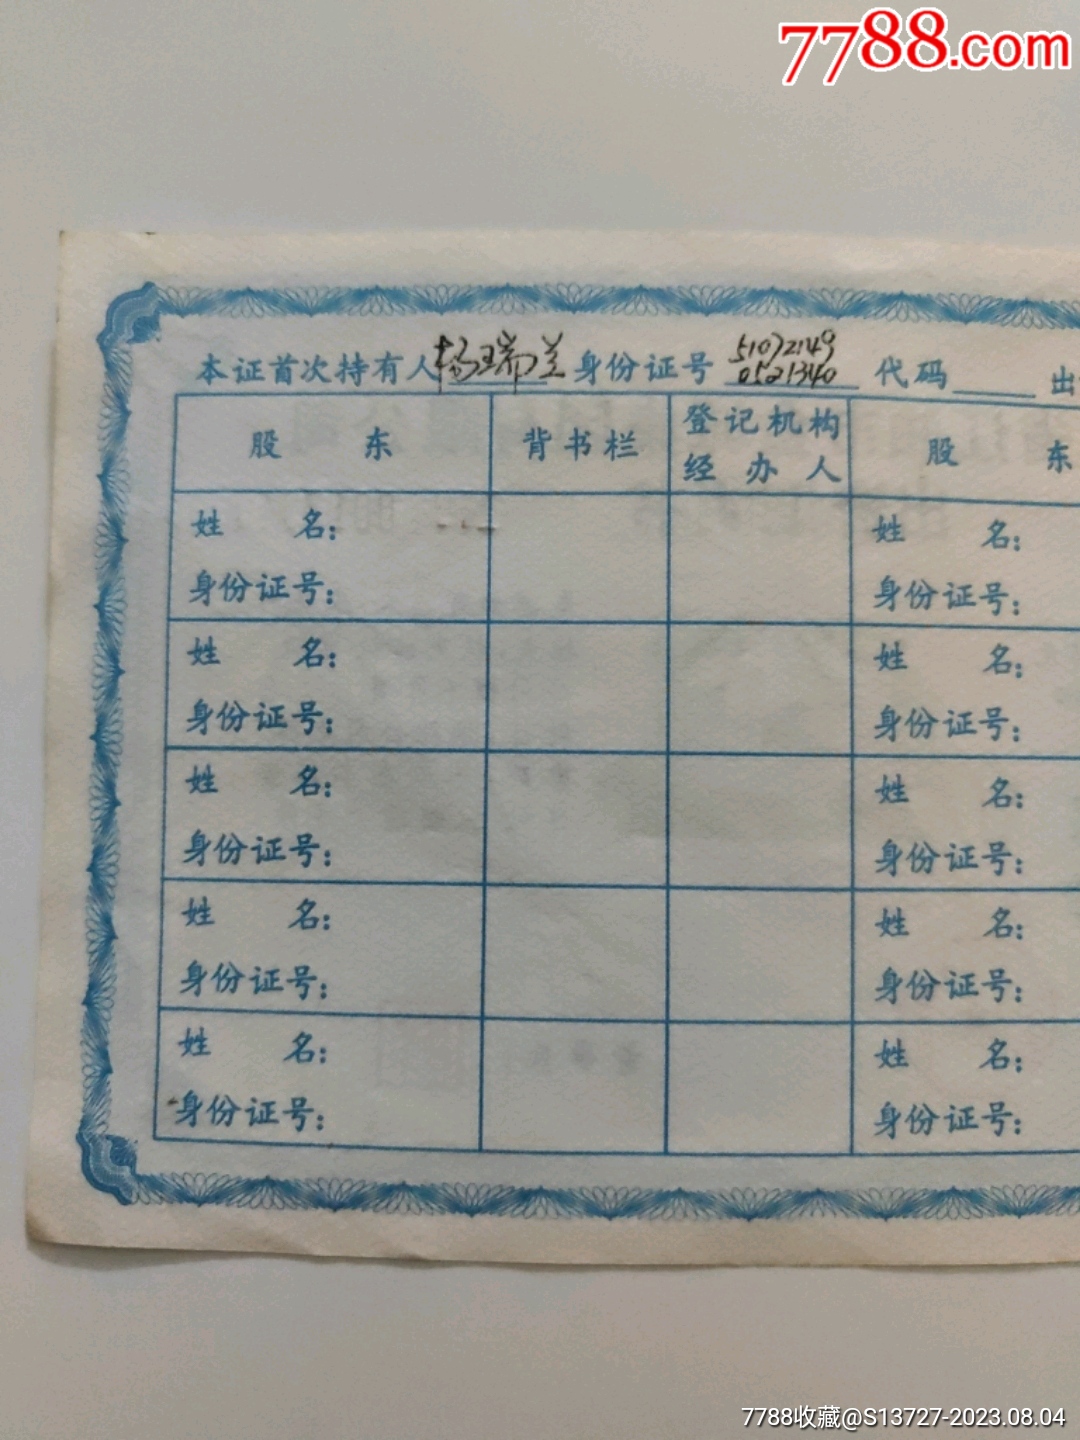 7788.com
本证首次持有人杨瑞兰身份证号510721490521340代码 出
股 东 背书栏 登记机构经办人 股 东
姓 名: 姓 名:
身份证号: 身份证号:
姓 名: 姓 名:
身份证号: 身份证号:
姓 名: 姓 名:
身份证号: 身份证号:
姓 名: 姓 名:
身份证号: 身份证号:
姓 名: 姓 名:
身份证号: 身份证号:
7788收藏@S13727-2023.08.04